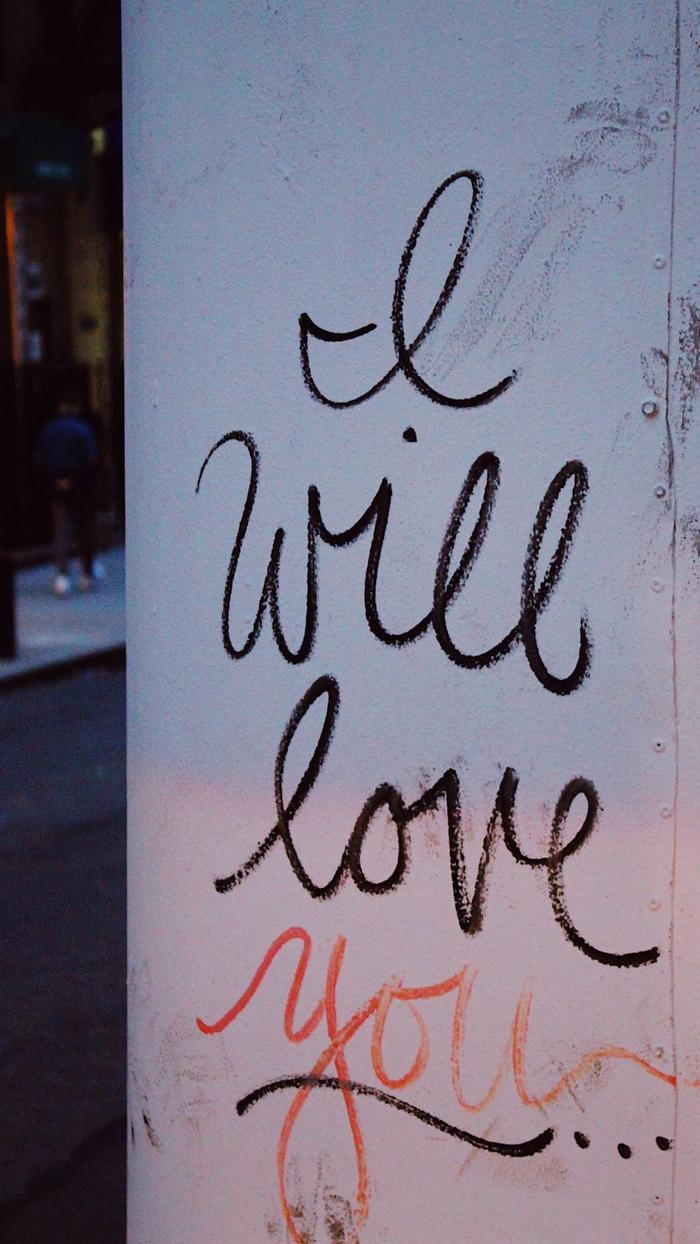 I
Will
love
you...